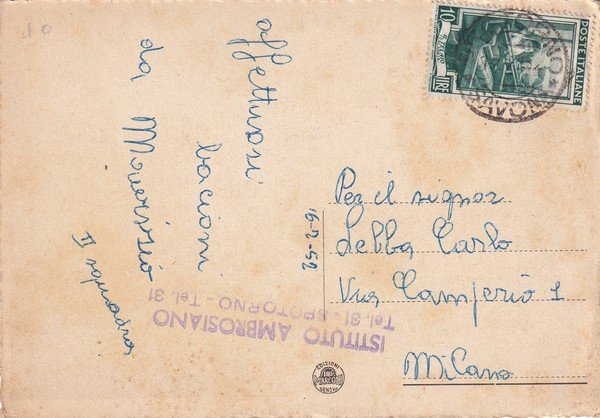 affettuosi
bacioni
da
II squadra
16-2-52
Per il signor
Lebba Carlo
Via Camperio 1
Milano
ISTITUTO AMBROSIANO
Tel. 31 - SPOTORNO - Tel. 31
POSTE ITALIANE
LIRE
10
EDIZIONI
GENOVA